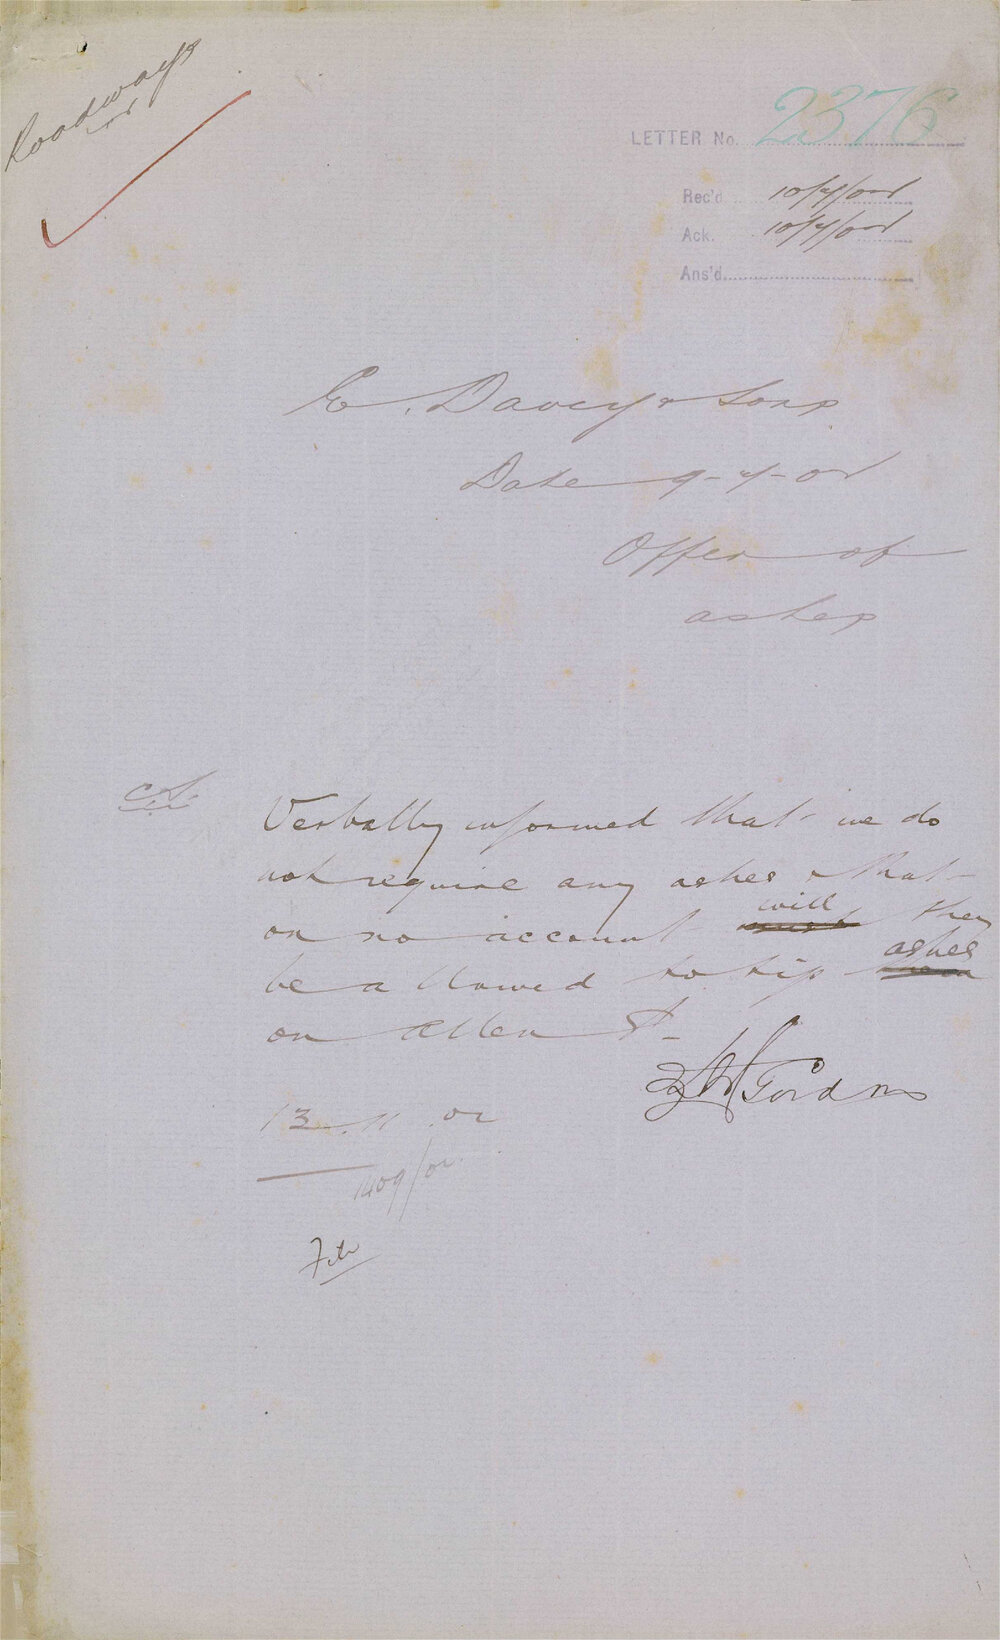 Roadways
LETTER No. 2376
Rec'd
Ack.
Ans'd
E. Davey & Sons
Date 9-7-02
Offer of
ashes
Verbally informed that we do
not require any ashes & that
on no account will they
be allowed to tip ashes
on Allen St.
Gordon
13.11.02
1409/02
File